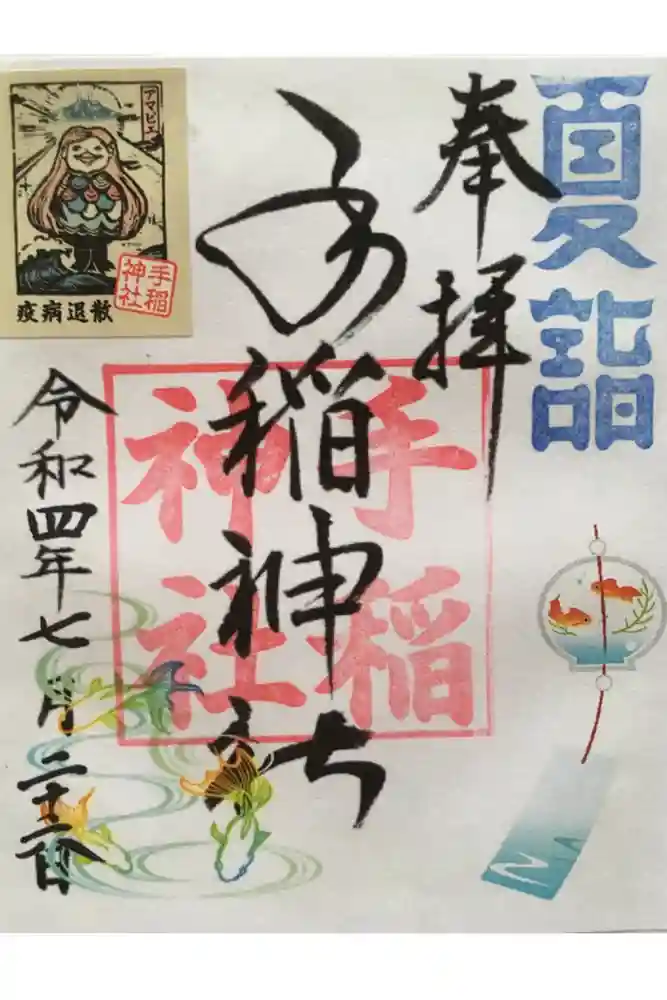 夏詣
奉拝
手稲神社
手稲
神社
アマビエ
手稲
神社
疫病退散
令和四年七月二十二日